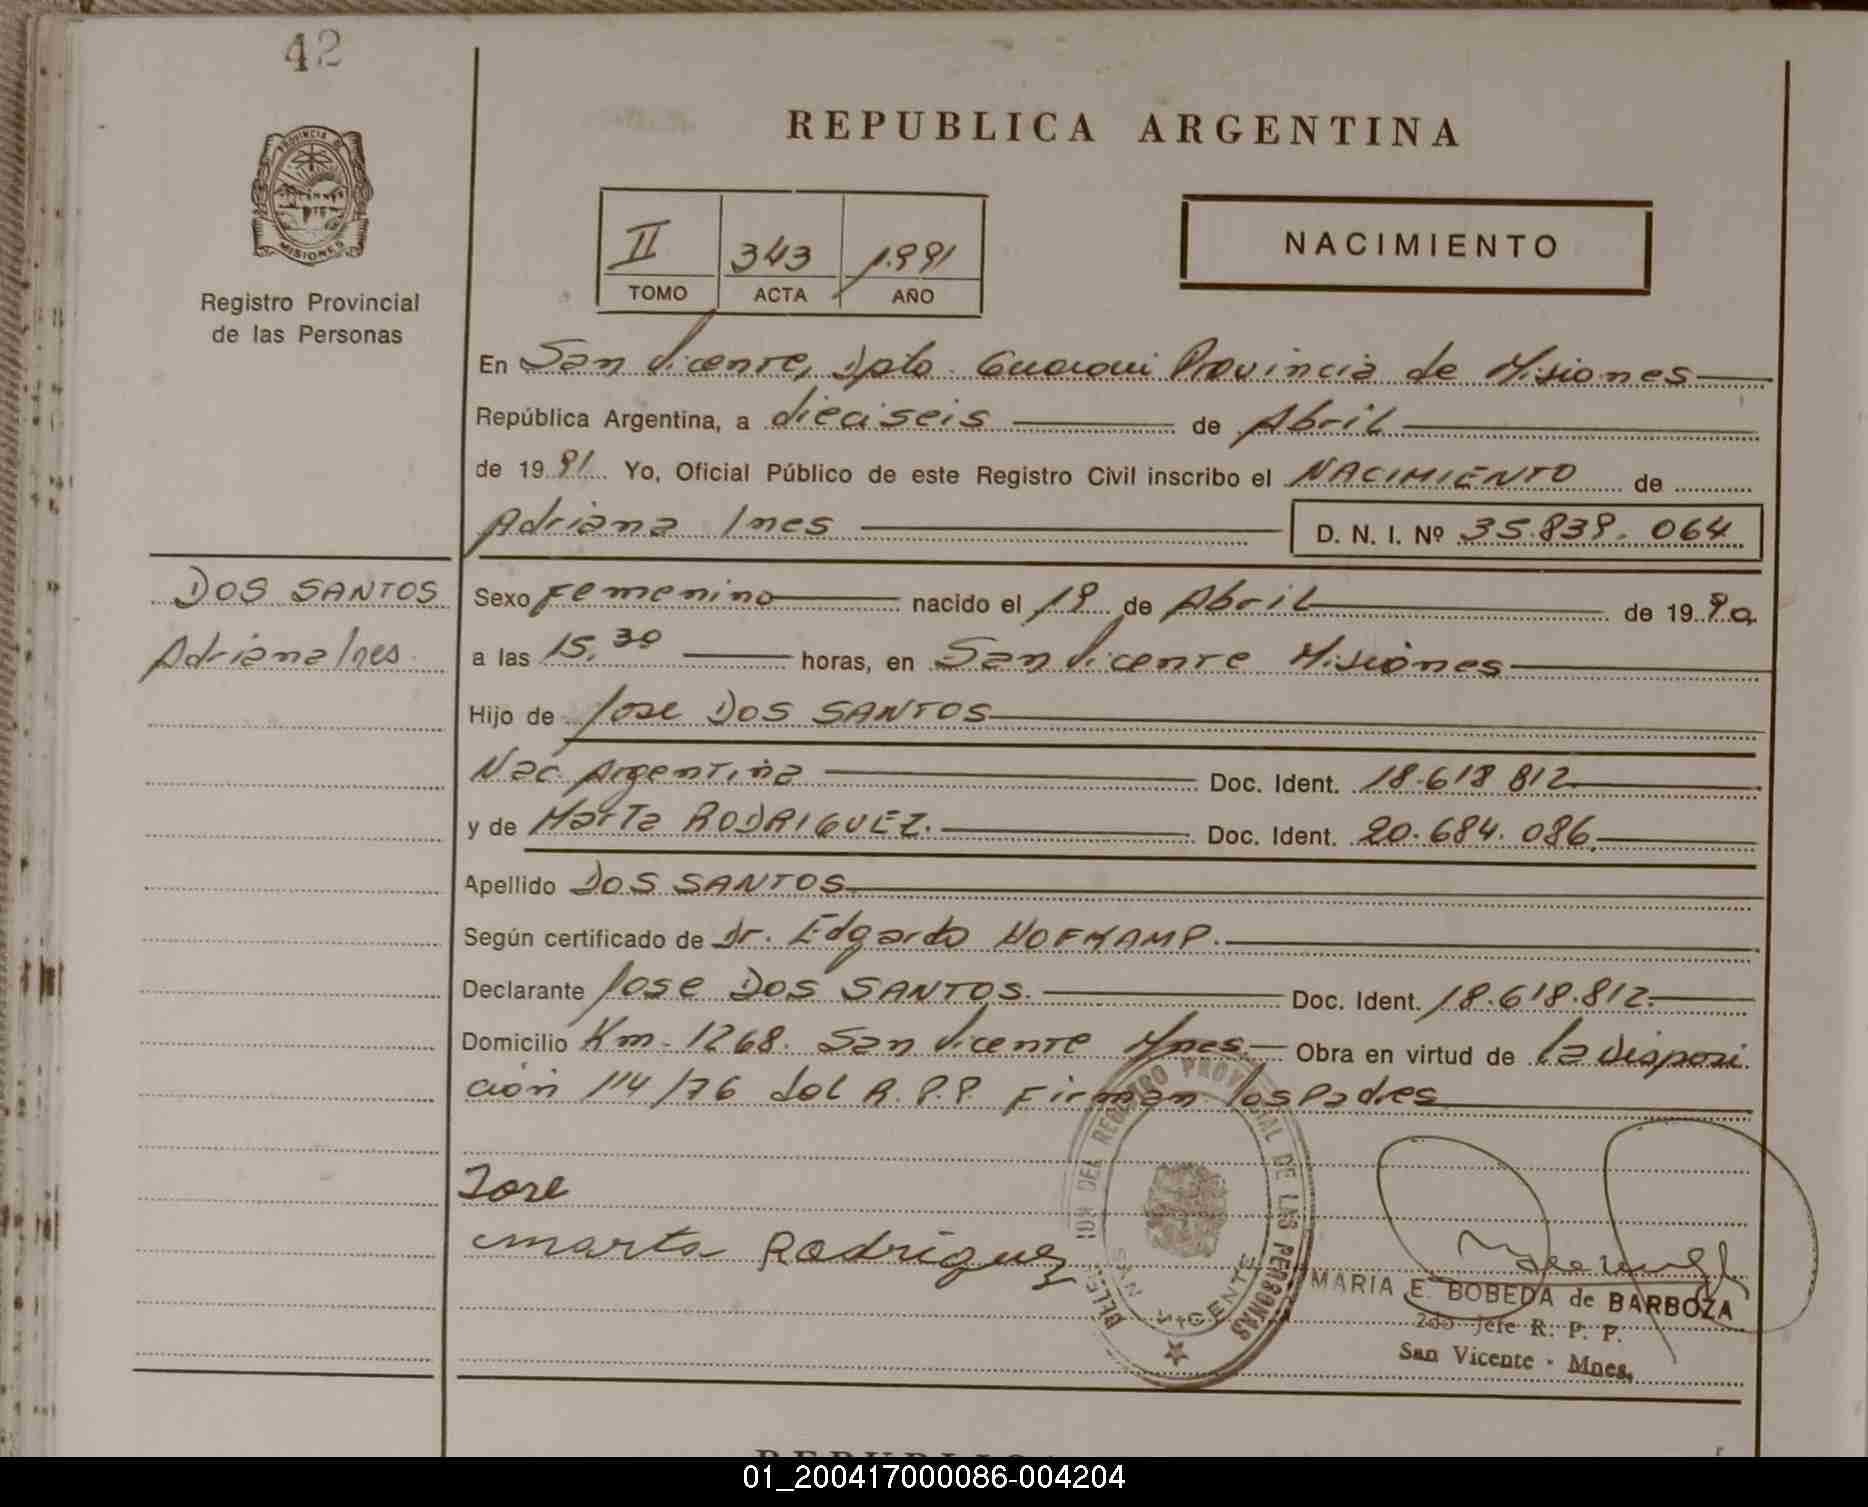 42
REPUBLICA ARGENTINA
PROVINCIA DE
MISIONES
Registro Provincial
de las Personas
II 343 1.991
TOMO ACTA AÑO
NACIMIENTO
En San Vicente, Dpto. Guarani Provincia de Misiones
República Argentina, a dieciseis de Abril
de 19 91 Yo, Oficial Público de este Registro Civil inscribo el NACIMIENTO de
Adriana Ines D. N. I. Nº 35.839.064
DOS SANTOS
Adriana Ines
Sexo Femenino nacido el 19 de Abril de 19 90
a las 15,30 horas, en San Vicente Misiones
Hijo de Jose DOS SANTOS
Nac. Argentina Doc. Ident. 18.618 812
y de Marta RODRIGUEZ. Doc. Ident. 20.684.086
Apellido DOS SANTOS
Según certificado de Dr. Edgardo HOFKAMP.
Declarante Jose DOS SANTOS. Doc. Ident. 18.618.812
Domicilio Km. 1268. San Vicente Mnes. Obra en virtud de la Disposi
ción 114/76 del R.P.P. Firman los Padres
Jose
Marta Rodriguez
DELEGACION DEL REGISTRO PROVINCIAL DE LAS PERSONAS
SAN VICENTE
MARIA E. BOBEDA de BARBOZA
2do Jefe R. P. P.
San Vicente - Mnes.
01_200417000086-004204